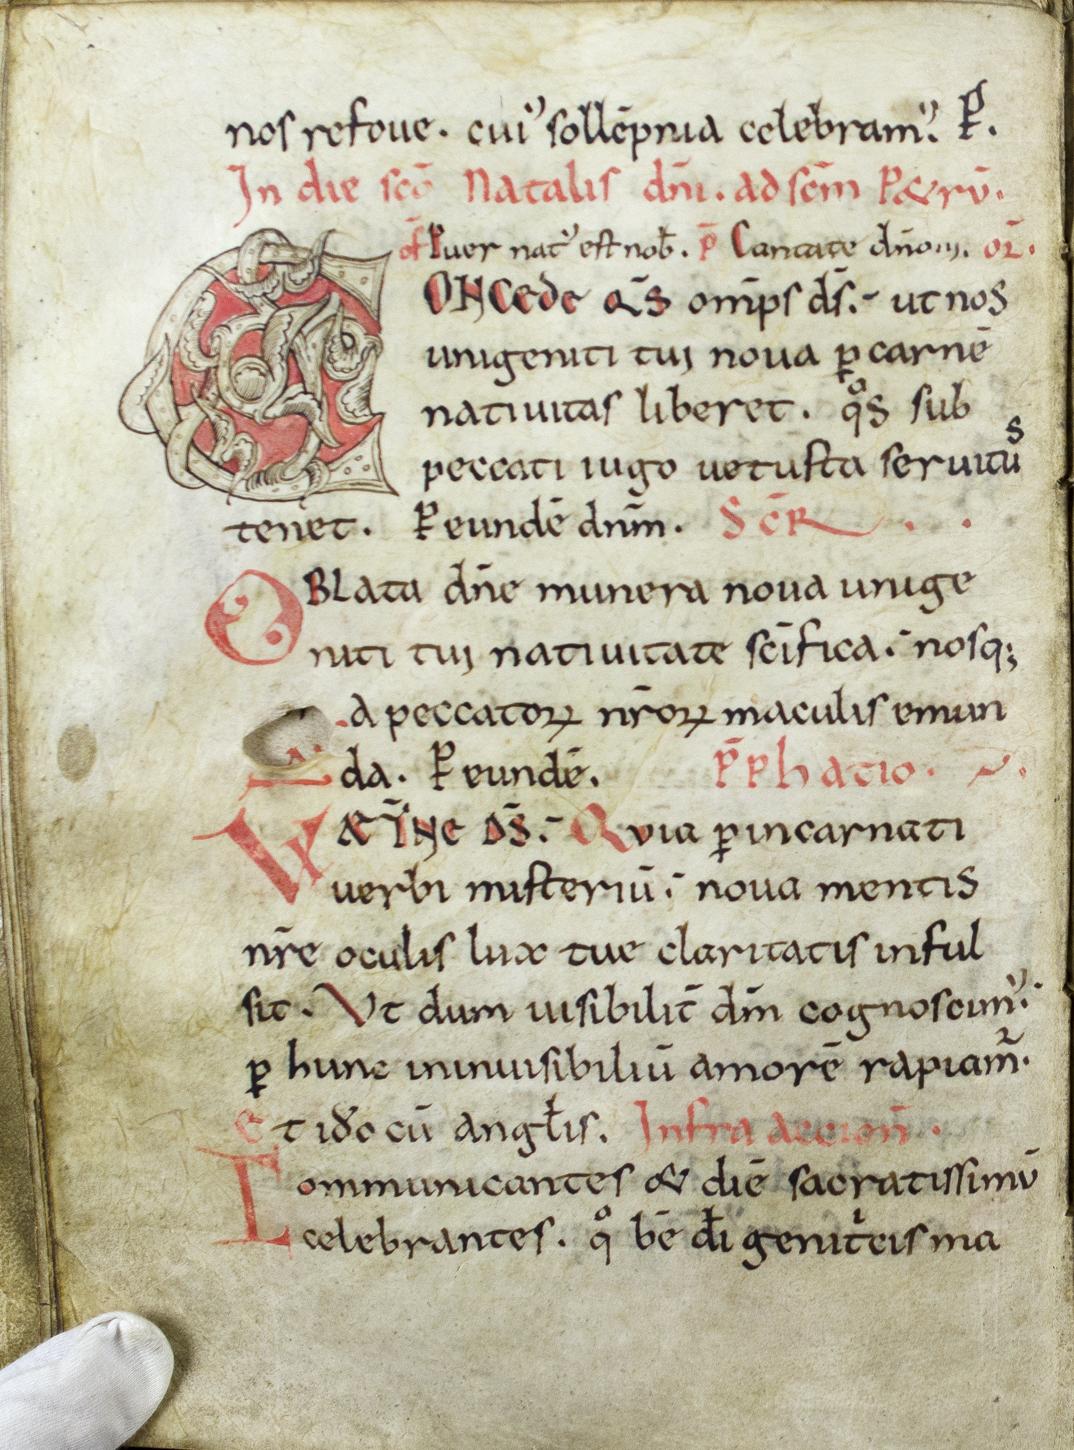 nos refoue. cui᾽ sollēpnia celebram᾽. P̄.
In die scō Natalis dn̄i. ad scm̄ P&rū.
off Puer nat᾽ est nob̄. p̄ Cantate dn̄o. or̄.
ONCede qs̄ omīps ds̄. ut nos
unigeniti tui noua ꝑ carnē
natiuitas liberet. qͦs sub
peccati iugo uetusta seruitūs
tenet. P eundē dnm̄. SēCR
OBLata dn̄e munera noua unige
niti tui natiuitate scīfica. nosq;
a peccatoꝝ nr̄oꝝ maculis emun
da. P eundē. P̄Phatio.
V Æ T̄NE DS̄. Quia ꝑ incarnati
uerbi misteriū. noua mentis
nr̄e oculis lux tue claritatis inful
sit. Vt dum uisibilit̄ dm̄ cognoscim᾽.
ꝑ hunc inuisibiliū amorē rapiam̄.
Et iđo cū anglis. Infra accion̄.
Communicantes & diē sacratissimū
celebrantes. qͦ bē di genit̄cis ma